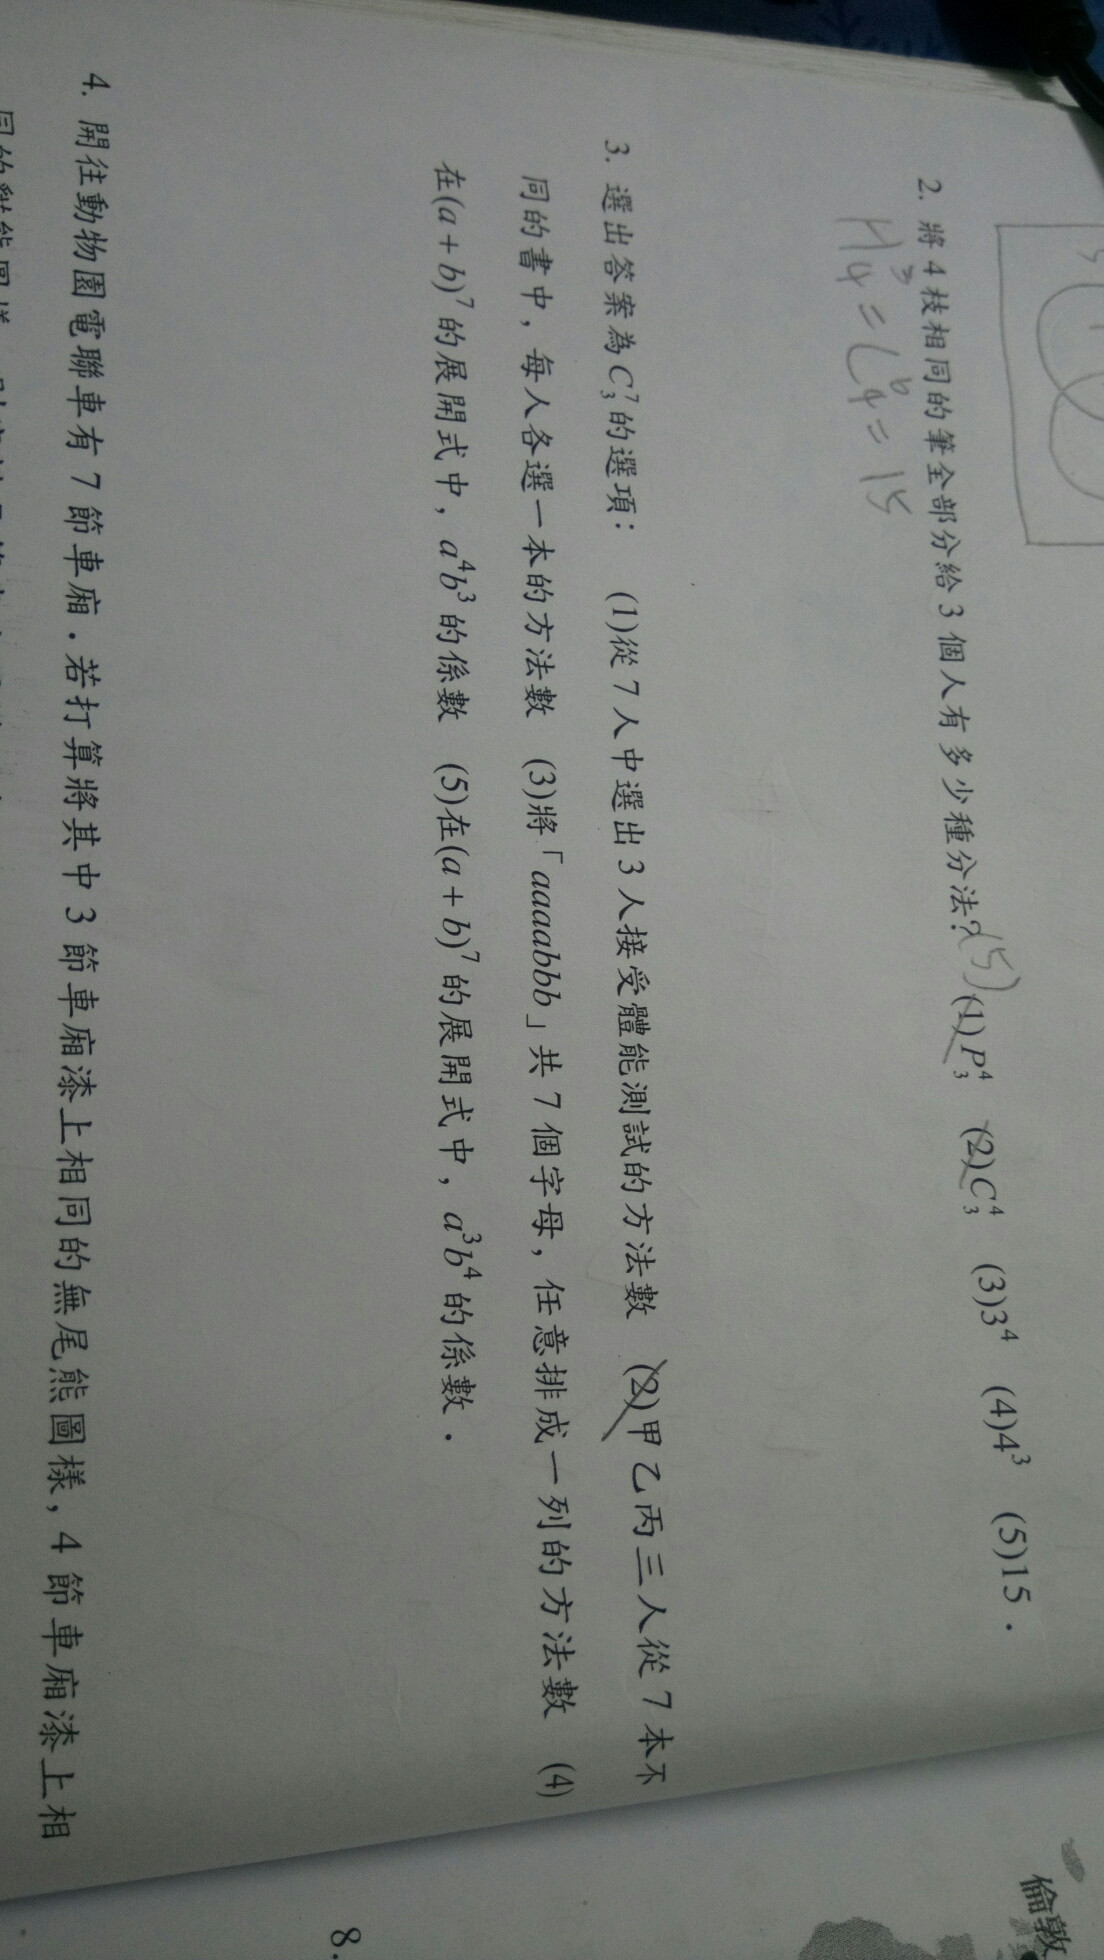 2. 將 4 枝相同的筆全部分給 3 個人有多少種分法?(5) (1)P⁴₃ (2)C⁴₃ (3)3⁴ (4)4³ (5)15.
H³₄ = C⁶₄ = 15
3. 選出答案為C⁷₃的選項: (1)從 7 人中選出 3 人接受體能測試的方法數 (2)甲乙丙三人從 7 本不
同的書中,每人各選一本的方法數 (3)將「aaaabbb」共 7 個字母,任意排成一列的方法數 (4)
在(a + b)⁷的展開式中,a⁴b³的係數 (5)在(a + b)⁷的展開式中,a³b⁴的係數.
4. 開往動物園電聯車有 7 節車廂.若打算將其中 3 節車廂漆上相同的無尾熊圖樣,4 節車廂漆上相
倫敦
8.